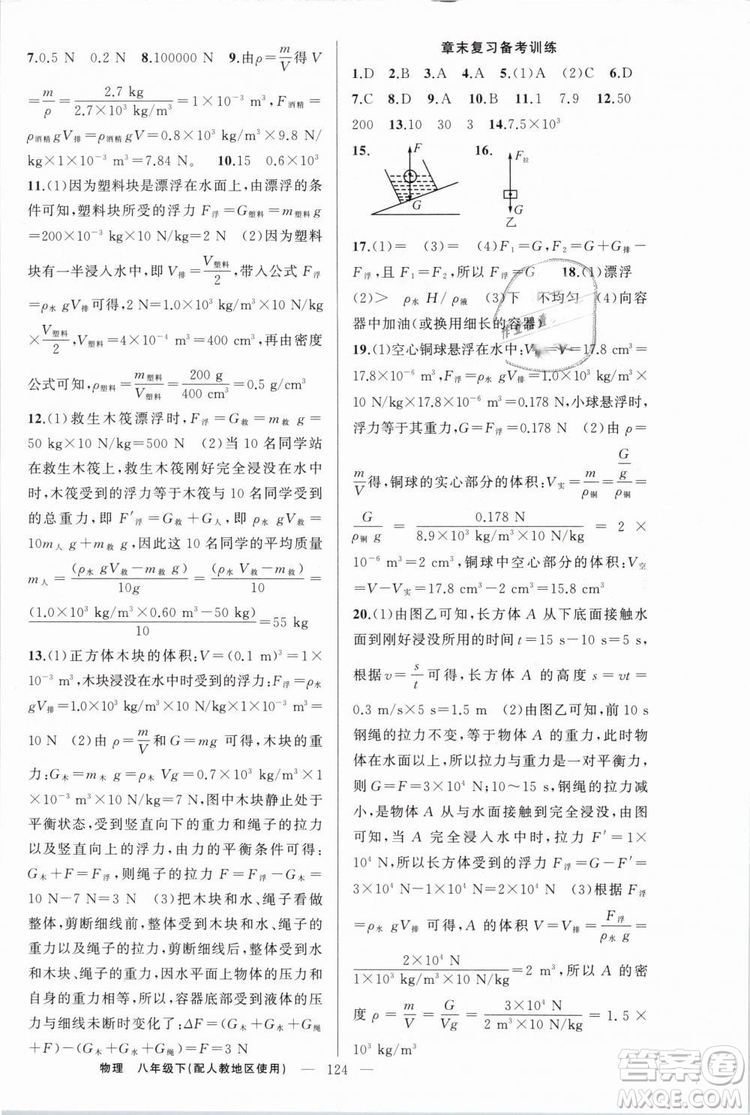 7.0.5 N　0.5 N　8.100000 N　9.由ρ=m/V得 V
=m/ρ=2.7 kg/(2.7×10³ kg/m³)=1×10⁻³ m³　F酒精=
ρ酒精 gV排=ρ酒精 gV=0.8×10³ kg/m³×9.8 N/
kg×1×10⁻³ m³=7.84 N。　10.15　0.6×10³
11.(1)因为塑料块是漂浮在水面上,由漂浮的条
件可知,塑料块所受的浮力 F浮=G塑料=m塑料 g
=200×10⁻³ kg×10 N/kg=2 N　(2)因为塑料
块有一半浸入水中,即 V排=V塑料/2,带入公式 F浮
=ρ水 gV排可得,1.0×10³ kg/m³×10 N/kg×
V塑料/2,V塑料=4×10⁻⁴ m³=400 cm³,再由密度
公式可知,ρ塑料=m塑料/V塑料=200 g/400 cm³=0.5 g/cm³
12.(1)救生木筏漂浮时,F浮=G救=m救 g=
50 kg×10 N/kg=500 N　(2)当 10 名同学站
在救生木筏上,救生木筏刚好完全浸没在水中
时,木筏受的浮力等于木筏与 10 名同学受到
的总重力,即 F′浮=G救+G人,ρ水 gV救=m救 g+
10m人 g+10×同学的平均质量
m人=(ρ水 gV救−m救 g)/10g=(ρ水 V救−m救)/10=
(1.0×10³ kg/m³×0.60 m³−50 kg)/10=55 kg
13.(1)正方体木块的体积:V=(0.1 m)³=1×
10⁻³ m³,木块浸没在水中时受到的浮力:F浮=ρ水
gV排=1.0×10³ kg/m³×10 N/kg×1×10⁻³ m³=
10 N　(2)由 ρ=m/V和G=mg 可得,木块的重
力:G木=m木 g=ρ木 V木 g=0.7×10³ kg/m³×1×
10⁻³ m³×10 N/kg=7 N,图中木块静止处于
平衡状态,受到竖直向下的重力和绳子的拉力
以及竖直向上的浮力,由力的平衡条件可得:
F浮=G+F,则绳子的拉力:F=F浮−G木=
10 N−7 N=3 N　(3)把木块和水、绳子看做
整体,剪断细线前,整体受到木块和水、绳子的
重力以及绳子的拉力,剪断后受到木块和水、绳
子的重力,因水平面上物体的压力和
自身的重力相等,所以,容器底部受到的压力
与细线未断时变化了:ΔF=(G木+G水+G绳
+F)−(G木+G水+G绳)=F=3 N
章末复习备考训练
1.D　2.B　3.A　4.A　5.(1)A　(2)C　6.D
7.C　8.D　9.A　10.B　11.1　7.9　12.50
200　13.10　30　3　14.7.5×10³
15. F G　16. F拉 G 乙
17.(1)=　(3)=　(4)F₁=G、F₂=G+G排、
F₁=F₂+F浮　所以F浮=G排　18.(1)漂浮
(2)>　ρ水 H/ρ液　(3)下　不均匀　(4)向容
器中加油(或换用细长的容器)
19.(1)空心铜球悬浮在水中:V排=V=17.8 cm³=
17.8×10⁻⁶ m³,F浮=ρ水 gV排=1.0×10³ kg/m³×10
N/kg×17.8×10⁻⁶ m³=0.178 N,小球悬浮时,浮
力等于其重力,F浮=G=0.178 N　(2)由 ρ=
m/V可得,铜球的实心部分的体积:V实=m/ρ铜=(G/g)/ρ铜=
G/ρ铜 g=0.178 N/(8.9×10³ kg/m³×10 N/kg)=2×
10⁻⁶ m³=2 cm³,铜球中空心部分的体积:V空
=V−V实=17.8 cm³−2 cm³=15.8 cm³
20.(1)由图乙可知,物体 A 从下底面接触水
面到刚好浸没所用的时间 t=15 s−10 s=5 s,
根据 v=s/t 可得,长方体 A 的高度 s=vt=
0.3 m/s×5 s=1.5 m　(2)由图乙可知,前 10 s
钢绳的拉力不变,等于物体 A 的重力,此时物
体在水面以上,所以拉力与重力是一对平衡力,
即 G=F=3×10⁴ N;10～15 s,钢绳的拉力减
小,是物体 A 从与水面接触到完全浸没。由图
可知,当 A 完全浸入水中时,拉力 F′=1×
10⁴ N,则浸没后物体 A 受到浮力:F浮=G−F′=
3×10⁴ N−1×10⁴ N=2×10⁴ N　(3)根据 F浮
=ρ水 gV排可得,A 的体积:V=V排=F浮/ρ水 g=
2×10⁴ N/(1×10³ kg/m³×10 N/kg)=2 m³,则物体 A 的密
度 ρ=m/V=G/Vg=3×10⁴ N/(2 m³×10 N/kg)=1.5×
10³ kg/m³
物理　八年级下(配人教地区使用)　— 124 —